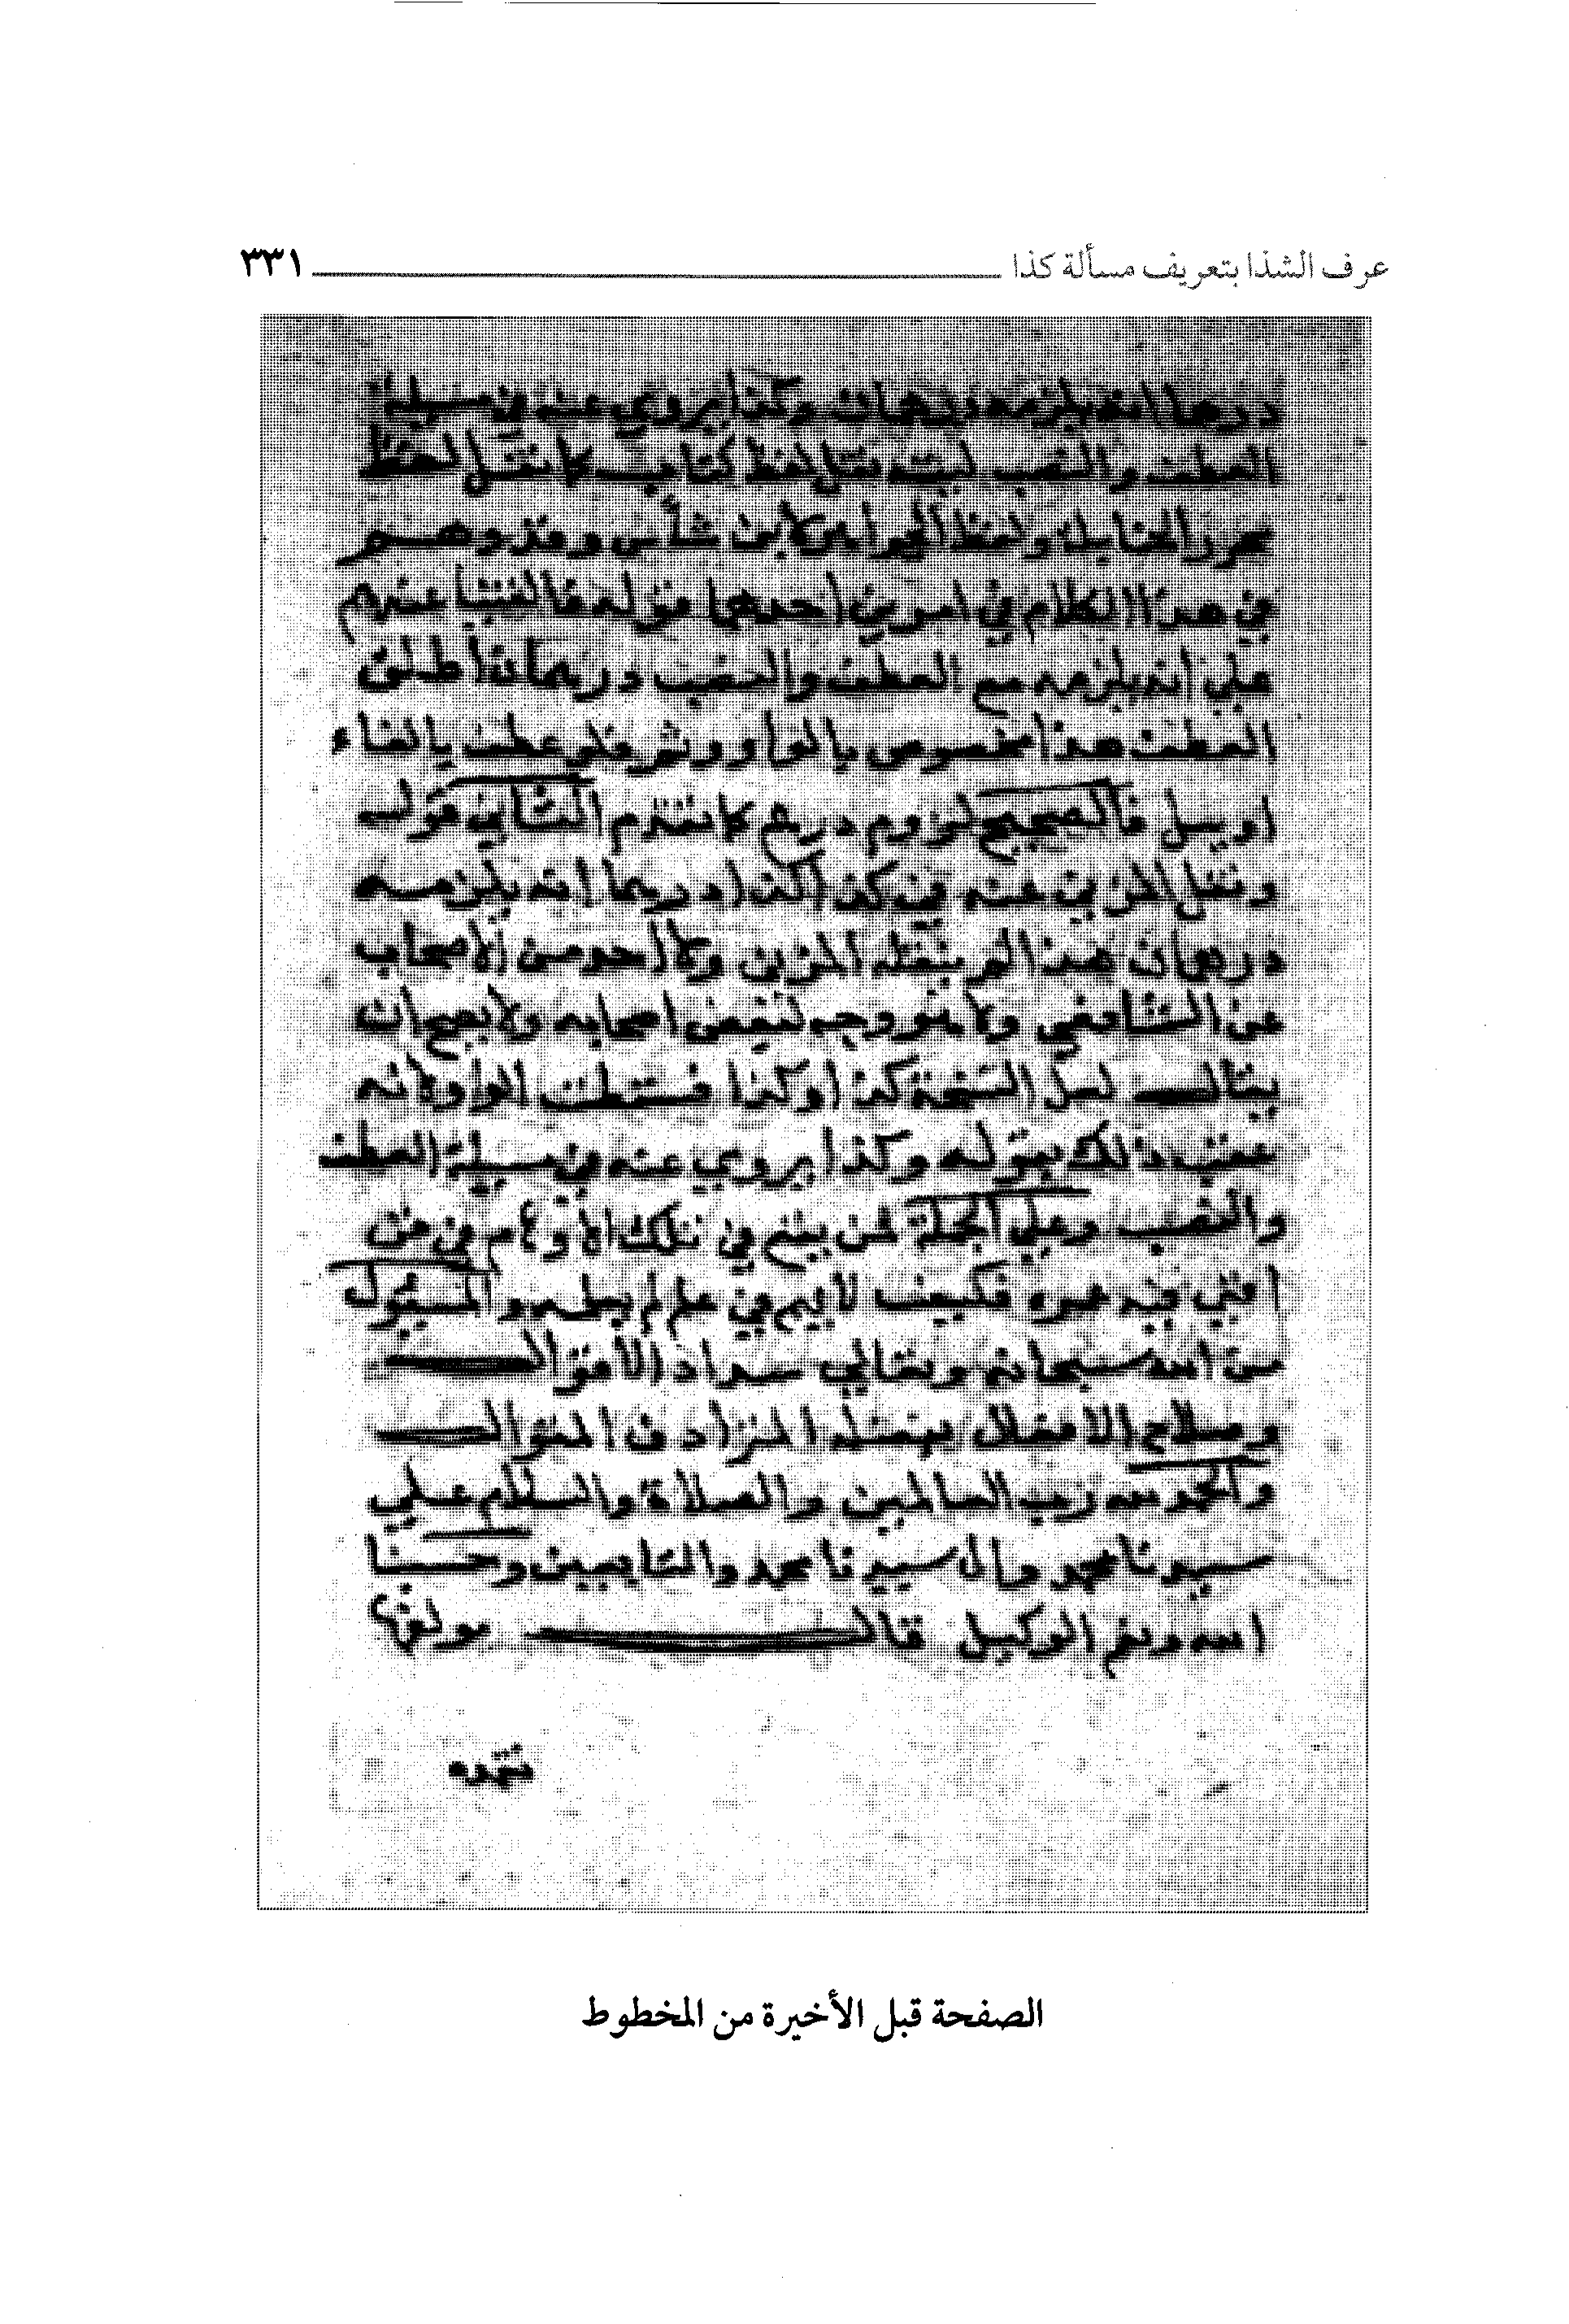 عرف الشذا بتعريف مسألة كذا ٣٣١
درهما انه يلزمه درهمان وكذا يروي عنه في مسيلة
العطف والنصب ليته نقل لفظ كتاب كما نقل لفظ
محرر الحنابلة ولفظ الجواهر لابن شأس وقد وهم
في هذا الكلام في امرين احدهما قوله فالفتيا عندهم
علي انه يلزمه مع العطف والنصب درهمان اطلق
العطف هذا مخصوص بالواو وثم فلو عطف بالفاء
او ببل فالصحيح لزوم درهم كما تقدم الثاني قوله
ونقل المزني عنه في كذا كذا درهما انه يلزمه
درهمان هذا لم ينقله المزني ولا احد من الاصحاب
عن الشافعي ولا هو وجه لبعض اصحابه ولا يصح ان
يقال لعل النسخة كذا وكذا فسقطت الواو لانه
عقب ذلك بقوله وكذا يروي عنه في مسيلة العطف
والنصب وعلي الجملة لمن يقع في تلك الاوهام في فن
افني فيه عمره فكيف لا يهم في علم لم يعلمه والمسئول
من الله سبحانه وتعالي سداد الاقوال
وصلاح الافعال بفضله المتزادف المتوال
والحمد لله رب العالمين والصلاة والسلام علي
سيدنا محمد وال سيدنا محمد والتابعين وحسبنا
الله ونعم الوكيل قال مولفها
تغمده
الصفحة قبل الأخيرة من المخطوط